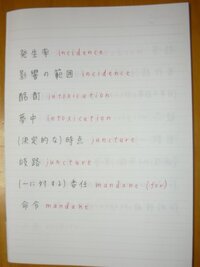 発生率 incidence
影響の範囲 incidence
酩酊 intoxication
夢中 intoxication
(決定的な)時点 juncture
岐路 juncture
(〜に対する)委任 mandane (for)
命令 mandane